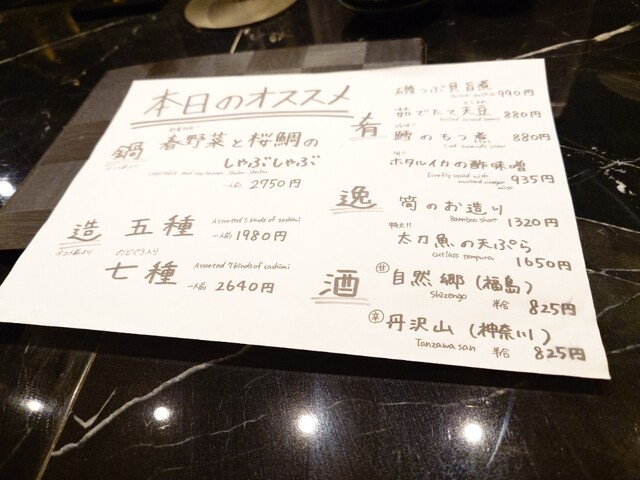 本日のオススメ
鍋
春野菜と桜鯛の
しゃぶしゃぶ
vegetable and sea bream Shabu-Shabu
一人前 2750円
造
五種 Assorted 5 kinds of sashimi
一人前 1980円
のどぐろ入り
七種 Assorted 7 kinds of sashimi
一人前 2640円
肴
磯つぶ貝旨煮
990円
茹でたて天豆
880円
鱈のもつ煮 880円
ホタルイカの酢味噌
Firefly squid with
mustard vinegar
miso
935円
逸
筍のお造り
Bamboo shoot 1320円
特大!!
太刀魚の天ぷら
cutlass tempura 1650円
酒
甘 自然郷(福島)
Shizengo 半合 825円
辛 丹沢山(神奈川)
Tanzawa san 半合 825円